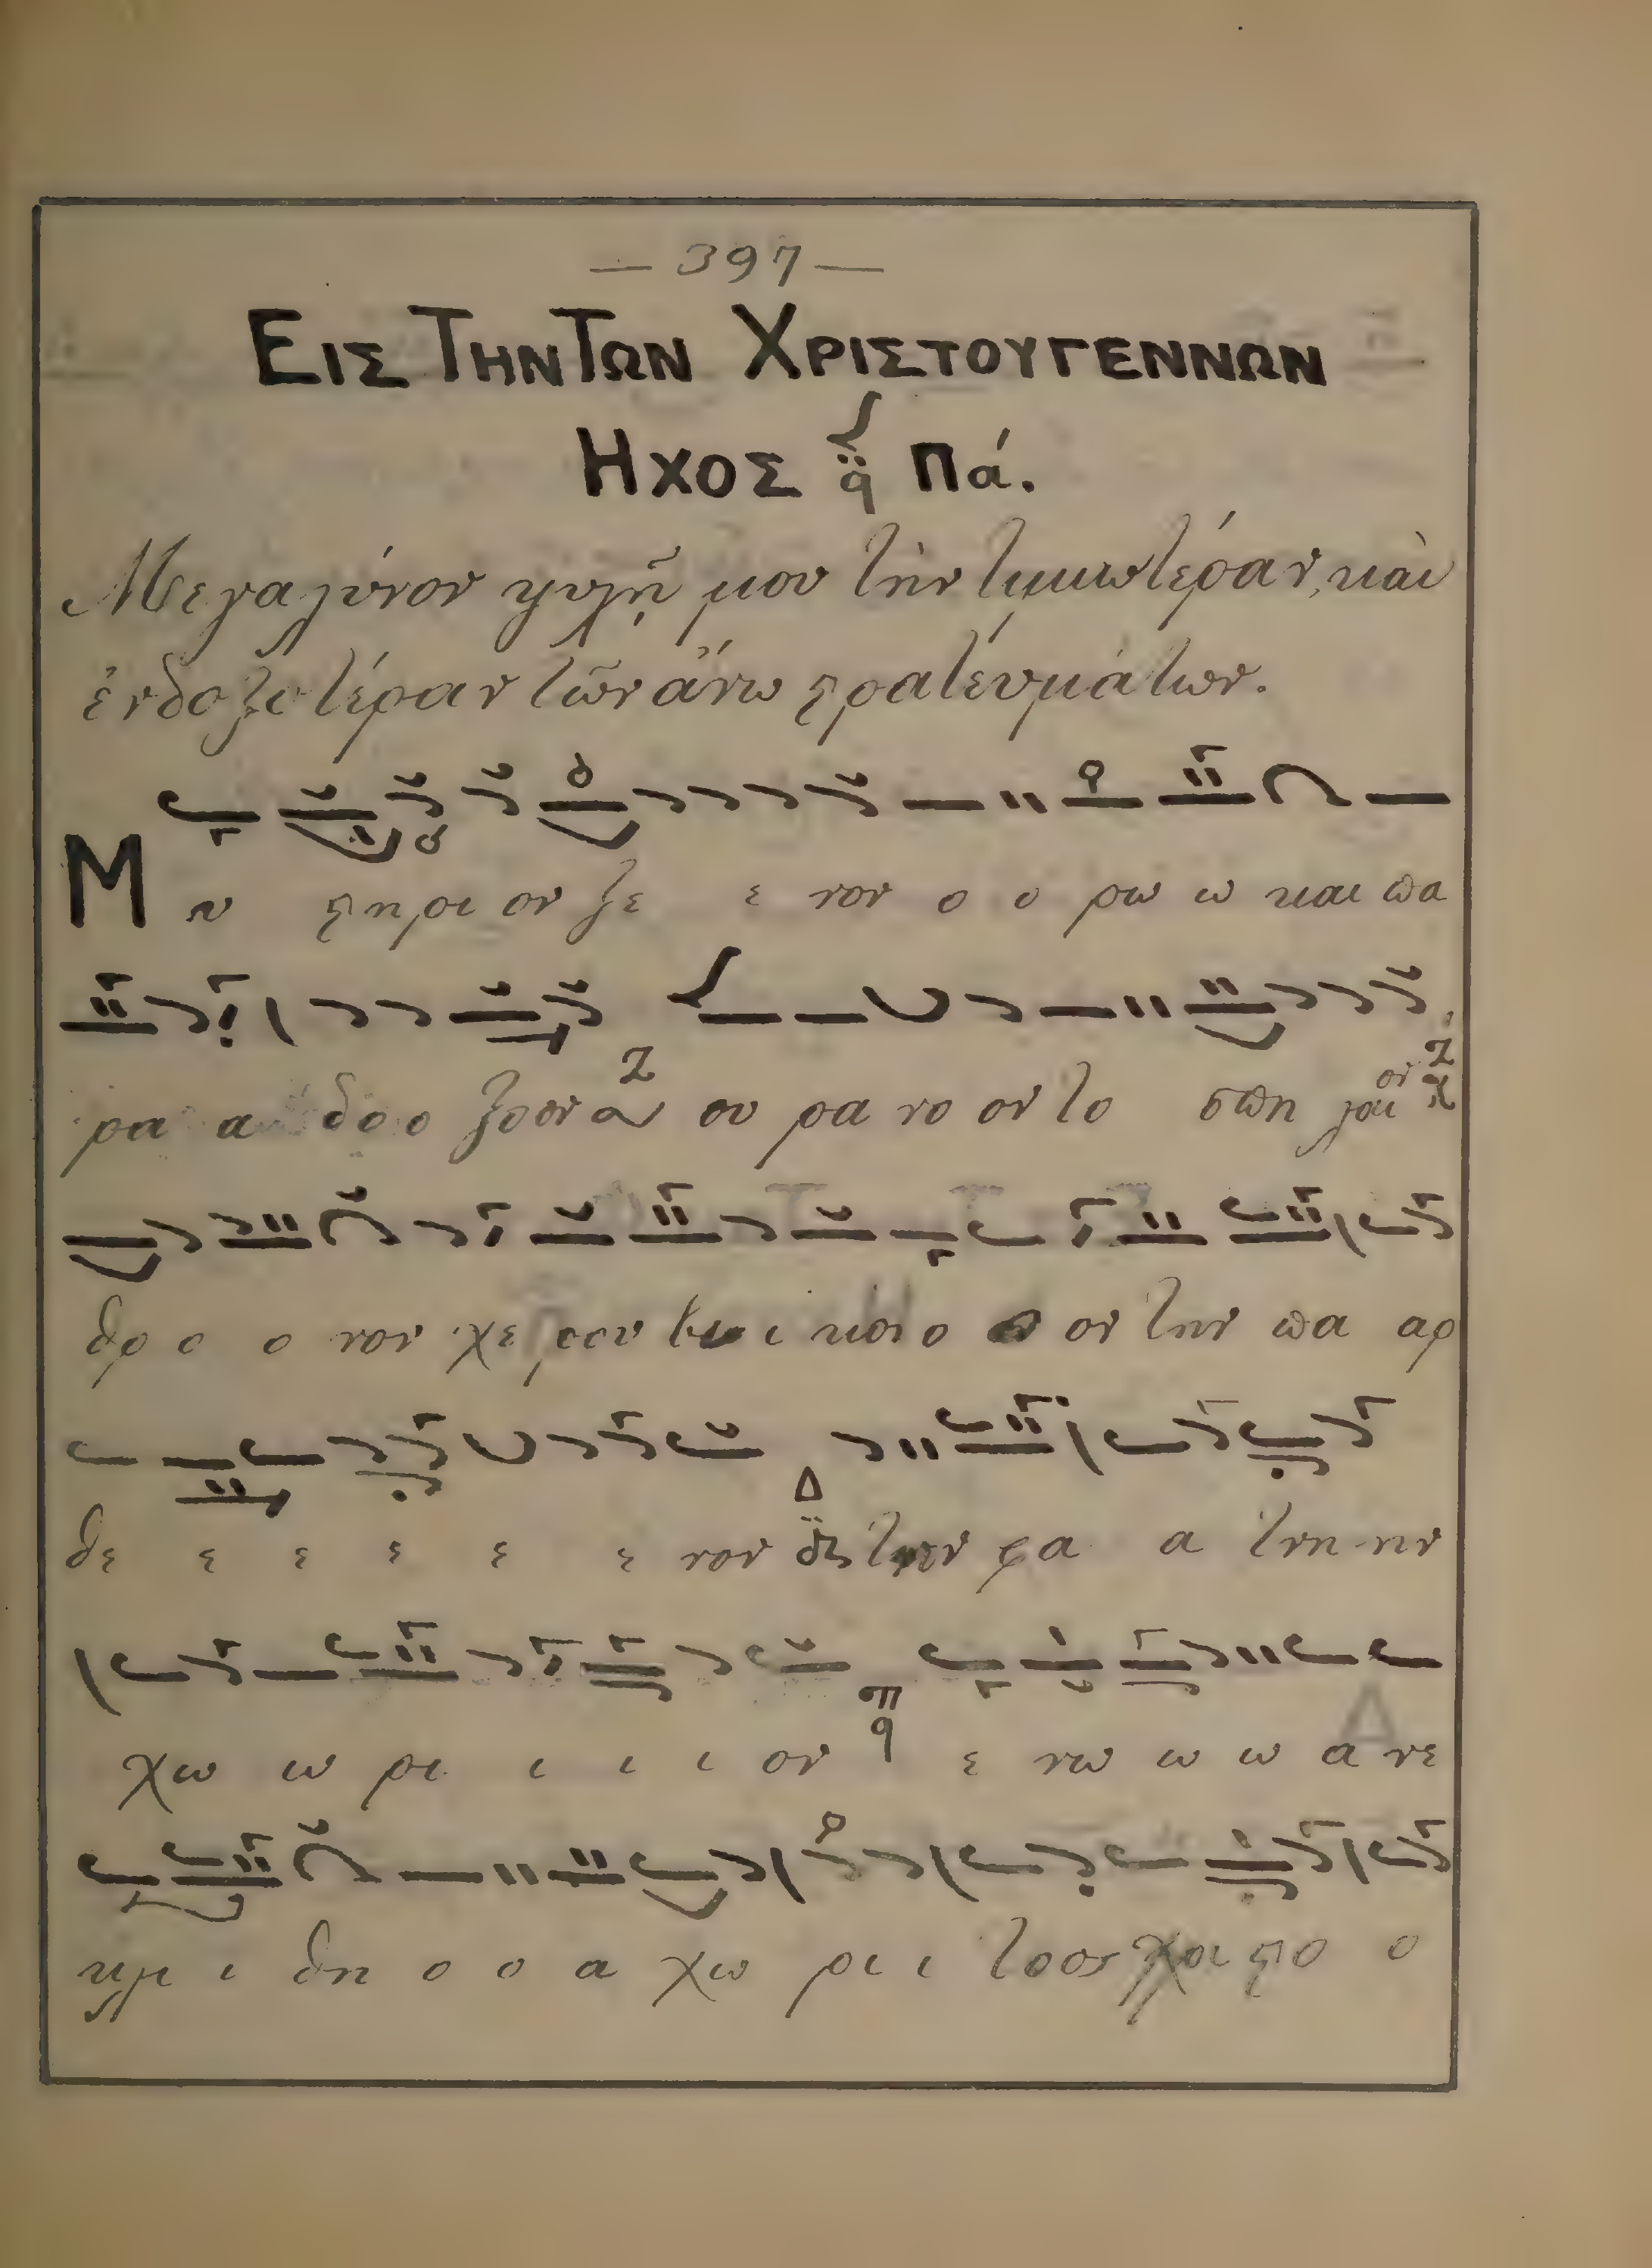 — 397 —
ΕΙΣ ΤΗΝ ΤΩΝ ΧΡΙΣΤΟΥΓΕΝΝΩΝ
ΗΧΟΣ Πά.
Μεγαλύνον ψυχῆ μου τὴν τιμιωτέραν, καὶ
ἐνδοξοτέραν τῶν ἄνω στρατευμάτων.
Μυ στηρι ον ξε ε νον ο ο ρω ω και πα
ρα α δο ο ξοον ου ρα νο ον το σπη λαι ον
θρο ο ο νον χε ρου βι ι κο ο ον την πα αρ
θε ε ε ε ε ε νον την φα α τνη ην
χω ω ρι ι ι ι ον ε νω ω ω α νε
κλι ι θη ο ο α χω ρι ι τοος Χρι στο ο